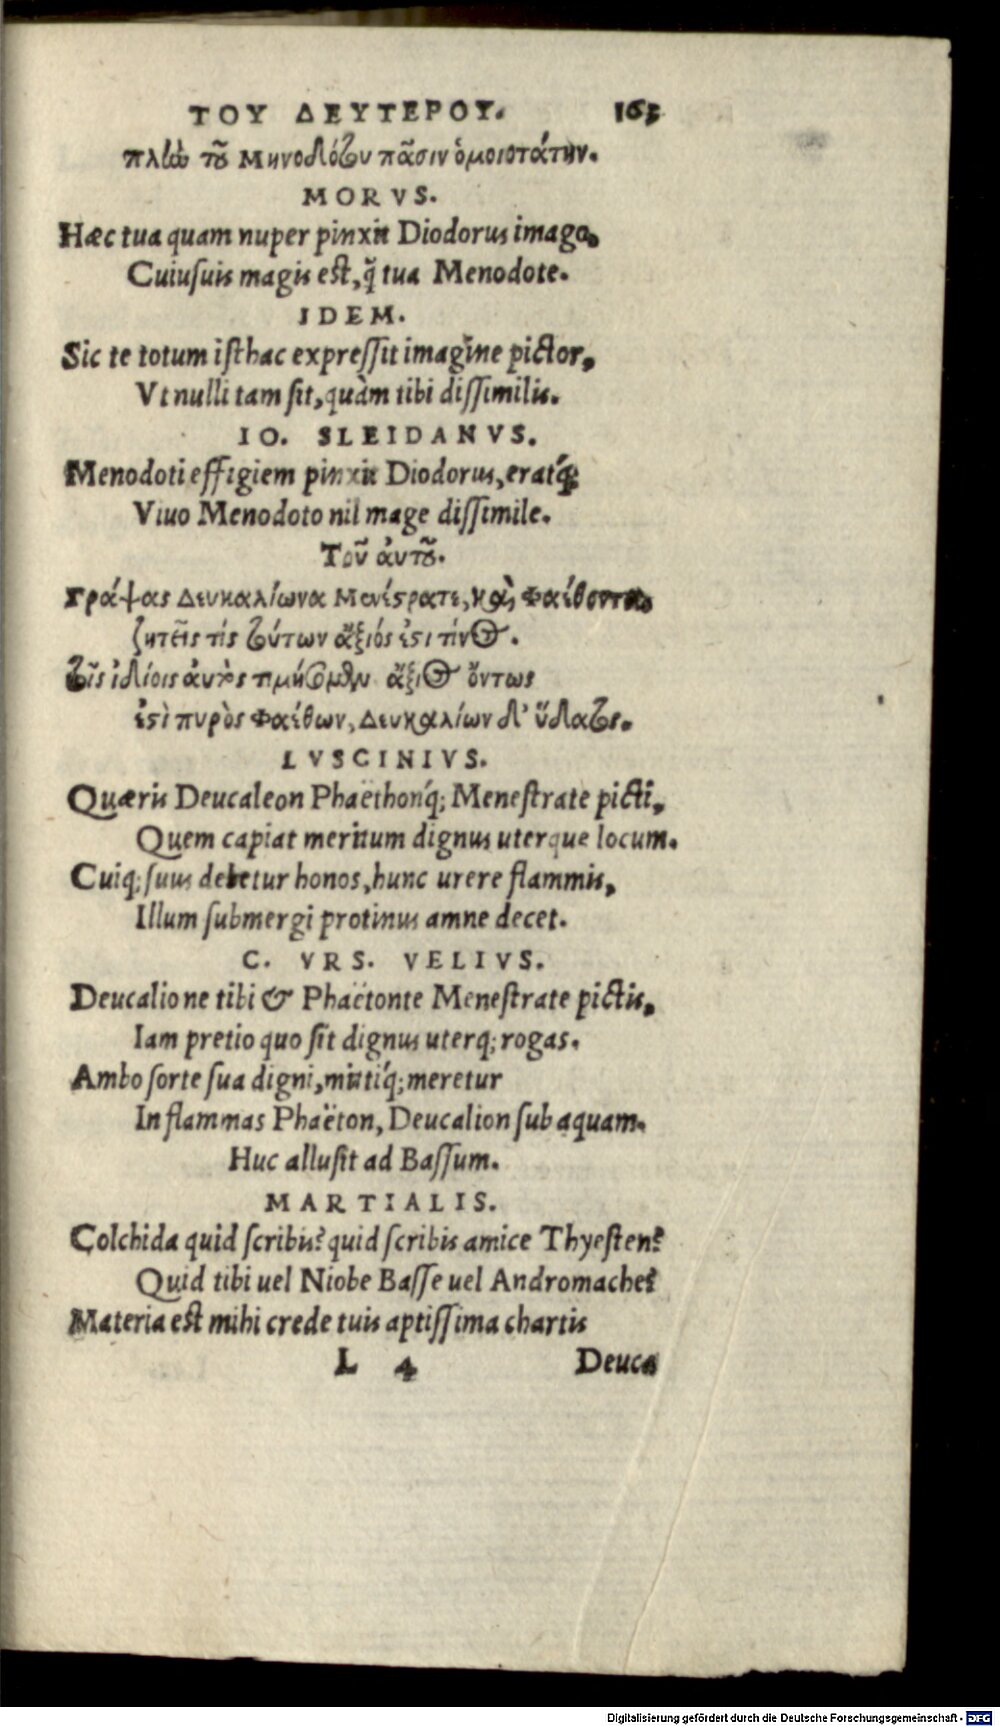 ΤΟΥ ΔΕΥΤΕΡΟΥ. 163
πλὴν τοῦ Μηνοδότου πᾶσιν ὁμοιοτάτην.
MORVS.
Hæc tua quam nuper pinxit Diodorus imago,
Cuiuſuis magis eſt, q̃ tua Menodote.
IDEM.
Sic te totum iſthac expreſſit imagine pictor,
Vt nulli tam ſit, quàm tibi diſſimilis.
IO. SLEIDANVS.
Menodoti effigiem pinxit Diodorus, eratq́;
Viuo Menodoto nil mage diſſimile.
Τοῦ ἀυτοῦ.
Γράψας Δευκαλίωνα Μενέστρατε, καὶ Φαέθοντα,
ζητεῖς τίς τούτων ἄξιός ἐστι τίνος.
τοῖς ἰδίοις ἀυτοὺς τιμήσομεν ἄξιος ὄντως
ἐστὶ πυρὸς Φαέθων, Δευκαλίων δ' ὕδατος.
LVSCINIVS.
Quæris Deucaleon Phaëthonq́; Meneſtrate picti,
Quem capiat meritum dignus uterque locum.
Cuiq; ſuus debetur honos, hunc urere flammis,
Illum ſubmergi protinus amne decet.
C. VRS. VELIVS.
Deucalione tibi & Phaëtonte Meneſtrate pictis,
Iam pretio quo ſit dignus uterq; rogas.
Ambo ſorte ſua digni, mittiq́; meretur
In flammas Phaëton, Deucalion ſub aquam.
Huc alluſit ad Baſſum.
MARTIALIS.
Colchida quid ſcribis? quid ſcribis amice Thyeſten?
Quid tibi uel Niobe Baſſe uel Andromache?
Materia eſt mihi crede tuis aptiſſima chartis
L 4 Deuca
Digitalisierung gefördert durch die Deutsche Forschungsgemeinschaft - DFG